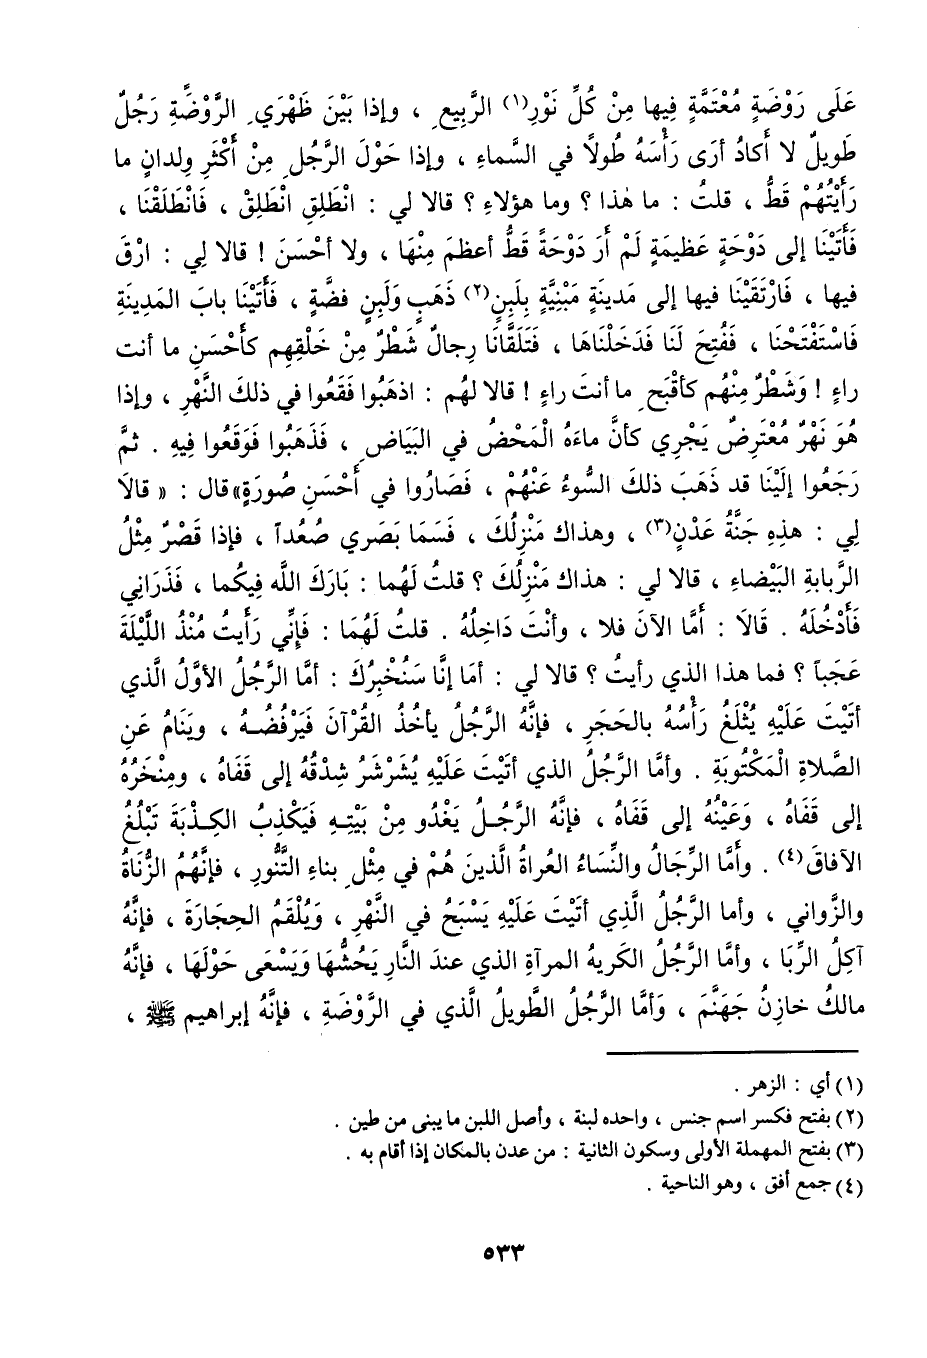 عَلَى رَوْضَةٍ مُعْتَمَّةٍ فِيها مِنْ كُلِّ نَوْرِ(١) الرَّبِيعِ ، وإذا بَيْنَ ظَهْرَيِ الرَّوْضَةِ رَجُلٌ
طَوِيلٌ لا أَكادُ أرَى رَأْسَهُ طُولاً في السَّماءِ ، وإذا حَوْلَ الرَّجُلِ مِنْ أَكْثَرِ وِلدانٍ ما
رَأَيْتُهُمْ قَطُّ ، قلتُ : ما هٰذا ؟ وما هؤلاءِ ؟ قالا لي : انْطَلِقِ انْطَلِقْ ، فَانْطَلَقْنَا ،
فَأَتَيْنَا إلى دَوْحَةٍ عَظِيمَةٍ لَمْ أَرَ دَوْحَةً قَطُّ أعظمَ مِنْهَا ، ولا أحْسَنَ ! قالا لِي : ارْقَ
فيها ، فَارْتَقَيْنا فيها إلى مَدينةٍ مَبْنِيَّةٍ بِلَبِنٍ(٢) ذَهَبٍ وَلَبِنٍ فضَّةٍ ، فَأَتَيْنَا بابَ المَدِينَةِ
فَاسْتَفْتَحْنَا ، فَفُتِحَ لَنَا فَدَخَلْنَاهَا ، فَتَلَقَّانَا رِجالٌ شَطْرٌ مِنْ خَلْقِهِم كأَحْسَنِ ما أنت
راءٍ ! وَشَطْرٌ مِنْهُم كأقْبَحِ ما أنتَ راءٍ ! قالا لهُم : اذهَبُوا فَقَعُوا في ذلكَ النَّهْرِ ، وإذا
هُوَ نَهْرٌ مُعْتَرِضٌ يَجْرِي كأنَّ ماءَهُ الْمَحْضُ في البَيَاضِ ، فَذَهَبُوا فَوَقَعُوا فِيهِ . ثمَّ
رَجَعُوا إلَيْنَا قد ذَهَبَ ذلكَ السُّوءُ عَنْهُمْ ، فَصَارُوا في أَحْسَنِ صُورَةٍ» قال : « قالَا
لِي : هذِهِ جَنَّةُ عَدْنٍ(٣) ، وهذاك مَنْزِلُكَ ، فَسَمَا بَصَري صُعُداً ، فإذا قَصْرٌ مِثْلُ
الرَّبابةِ البَيْضاءِ ، قالا لي : هذاكَ مَنْزِلُكَ ؟ قلتُ لَهُما : بَارَكَ اللَّه فِيكُما ، فَذَرَاني
فَأَدْخُلَهُ . قَالَا : أَمَّا الآنَ فلا ، وأنْتَ دَاخِلُهُ . قلتُ لَهُمَا : فَإِنِّي رَأَيتُ مُنْذُ اللَّيْلَةَ
عَجَباً ؟ فما هذا الذي رأيتُ ؟ قالا لي : أمَا إنَّا سَنُخْبِرُكَ : أمَّا الرَّجُلُ الأوَّلُ الَّذي
أتَيْتَ عَلَيْهِ يُثْلَغُ رَأْسُهُ بالحَجَرِ ، فإنَّهُ الرَّجُلُ يأخُذُ القُرْآنَ فَيَرْفُضُهُ ، ويَنَامُ عَنِ
الصَّلاةِ الْمَكْتُوبَةِ . وأمَّا الرَّجُلُ الذي أتَيْتَ عَلَيْهِ يُشَرْشَرُ شِدْقُهُ إلى قَفَاهُ ، ومِنْخَرُهُ
إلى قَفَاهُ ، وَعَيْنُهُ إلى قَفَاهُ ، فإنَّهُ الرَّجُلُ يَغْدُو مِنْ بَيْتِهِ فَيَكْذِبُ الكِذْبَةَ تَبْلُغُ
الآفاقَ(٤) . وأَمَّا الرِّجَالُ والنِّسَاءُ العُراةُ الَّذينَ هُمْ في مِثْلِ بناءِ التَّنُّورِ ، فإنَّهُمُ الزُّنَاةُ
والزَّواني ، وأما الرَّجُلُ الَّذِي أتَيْتَ عَلَيْهِ يَسْبَحُ في النَّهْرِ ، وَيُلْقَمُ الحِجَارَةَ ، فإنَّهُ
آكِلُ الرِّبَا ، وأمَّا الرَّجُلُ الكَرِيهُ المرآةِ الذي عندَ النَّارِ يَحُشُّهَا وَيَسْعَى حَوْلَهَا ، فإنَّهُ
مالكٌ خازِنُ جَهَنَّمَ ، وَأمَّا الرَّجُلُ الطَّوِيلُ الَّذي في الرَّوْضَةِ ، فإنَّهُ إبراهيم ﷺ ،
(١) أي : الزهر .
(٢) بفتح فكسر اسم جنس ، واحده لبنة ، وأصل اللبن ما يبنى من طين .
(٣) بفتح المهملة الأولى وسكون الثانية : من عدن بالمكان إذا أقام به .
(٤) جمع أفق ، وهو الناحية .
٥٣٣